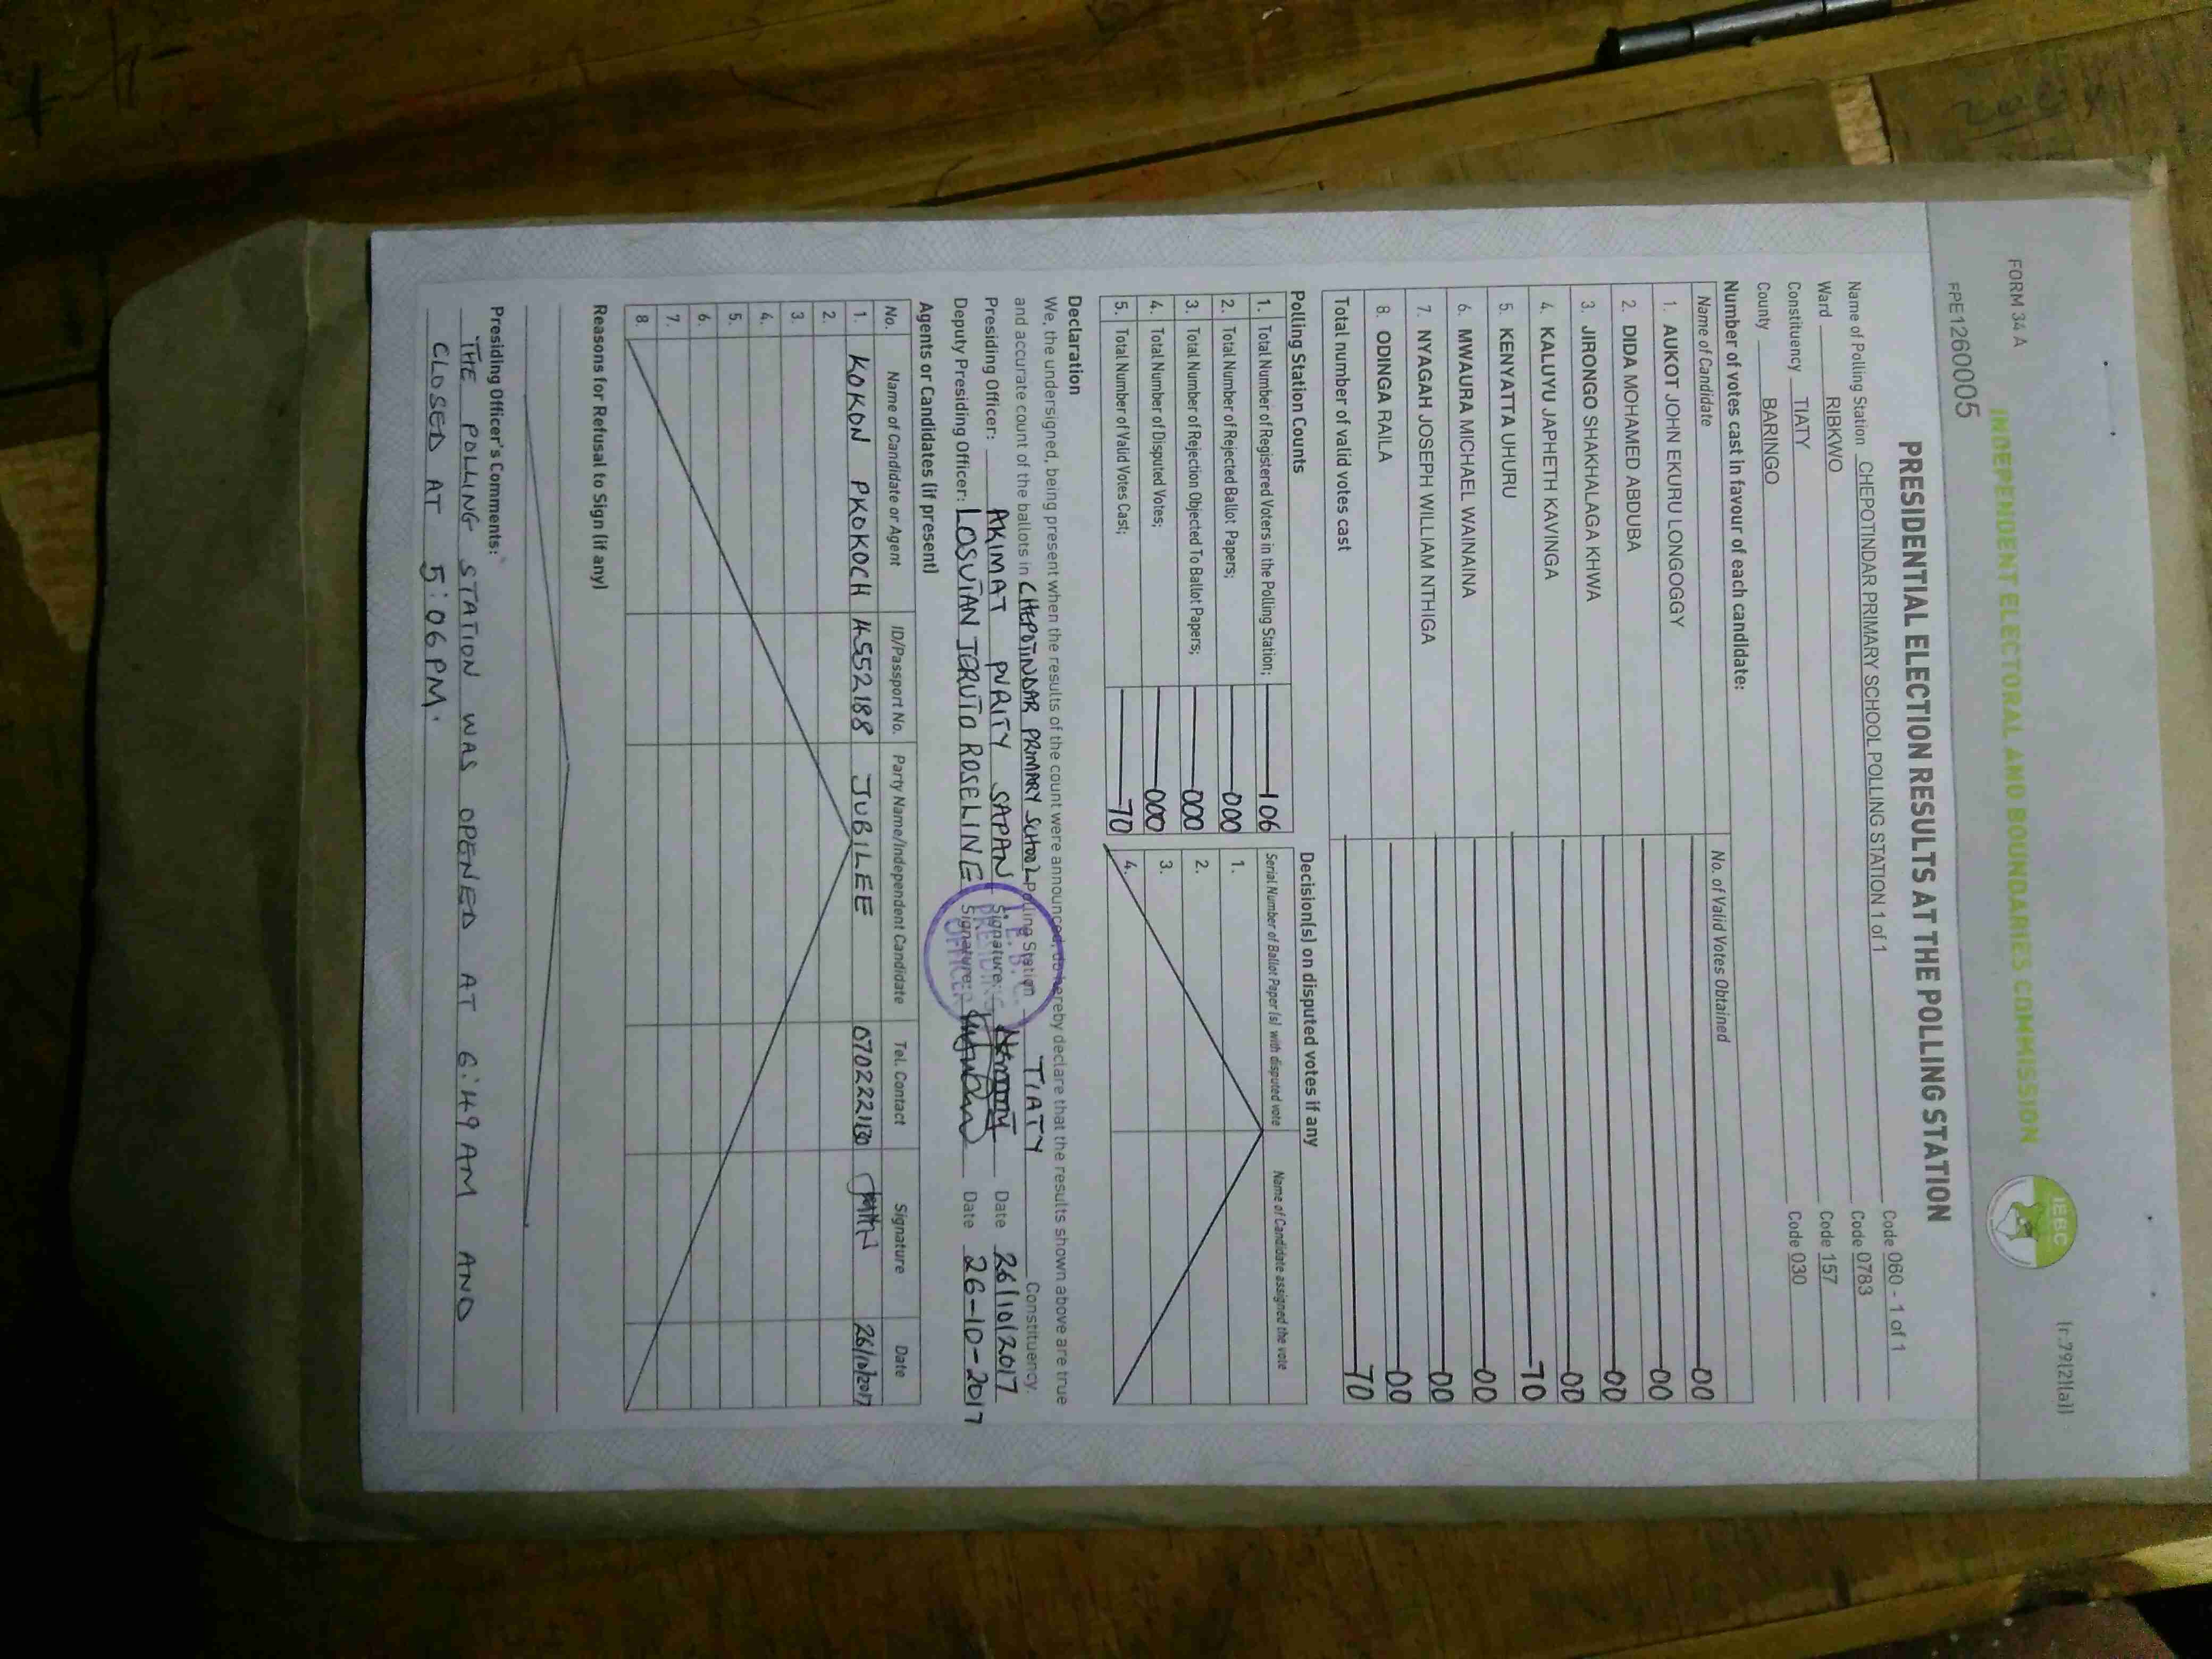 FORM 34 A
[r.79(2)(a)]
INDEPENDENT ELECTORAL AND BOUNDARIES COMMISSION
IEBC
FPE1260005
PRESIDENTIAL ELECTION RESULTS AT THE POLLING STATION
Name of Polling Station CHEPOTINDAR PRIMARY SCHOOL POLLING STATION 1 of 1 Code 060 - 1 of 1
Ward RIBKWO Code 0783
Constituency TIATY Code 157
County BARINGO Code 030
Number of votes cast in favour of each candidate:
Name of Candidate No. of Valid Votes Obtained
1. AUKOT JOHN EKURU LONGOGGY 00
2. DIDA MOHAMED ABDUBA 00
3. JIRONGO SHAKHALAGA KHWA 00
4. KALUYU JAPHETH KAVINGA 00
5. KENYATTA UHURU 70
6. MWAURA MICHAEL WAINAINA 00
7. NYAGAH JOSEPH WILLIAM NTHIGA 00
8. ODINGA RAILA 00
Total number of valid votes cast 70
Polling Station Counts
1. Total Number of Registered Voters in the Polling Station; 106
2. Total Number of Rejected Ballot Papers; 000
3. Total Number of Rejection Objected To Ballot Papers; 000
4. Total Number of Disputed Votes; 000
5. Total Number of Valid Votes Cast; 70
Decision(s) on disputed votes if any
Serial Number of Ballot Paper (s) with disputed vote Name of Candidate assigned the vote
1.
2.
3.
4.
Declaration
We, the undersigned, being present when the results of the count were announced, do hereby declare that the results shown above are true
and accurate count of the ballots in CHEPOTINDAR PRIMARY SCHOOL Polling Station TIATY Constituency.
Presiding Officer: AKIMAT PURITY SAPAN Signature: Date 26/10/2017
Deputy Presiding Officer: LOSUTAN JERUTO ROSELINE Signature: Date 26-10-2017
I.E.B.C.
PRESIDING
OFFICER
Agents or Candidates (if present)
No. Name of Candidate or Agent ID/Passport No. Party Name/Independent Candidate Tel. Contact Signature Date
1. KOKON PKOKOCH JUBILEE 26/10/2017
2.
3.
4.
5.
6.
7.
8.
Reasons for Refusal to Sign (if any)
Presiding Officer's Comments:
THE POLLING STATION WAS OPENED AT 6:49 AM AND
CLOSED AT 5:06 PM.